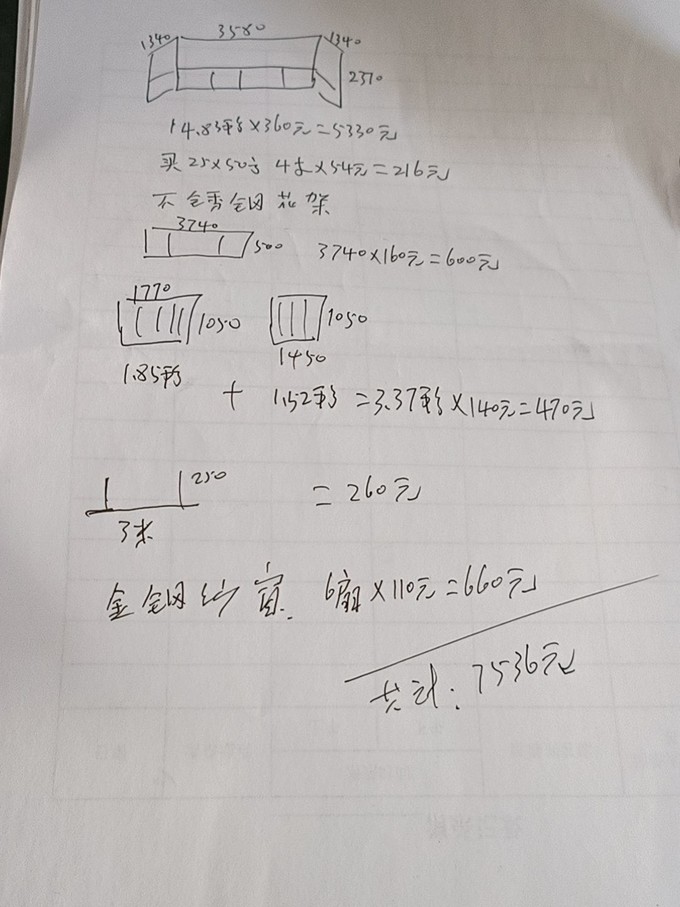 1340 3580 1340
2370
14.83平方×360元=5330元
买25×50方 4支×54元=216元
不仝秀仝网花架
3740
500 3740×160元=600元
1770
1050 1050
1450
1.85平方 + 1.52平方=3.37平方×140元=470元
250
=260元
3米
金钢纱窗. 6扇×110元=660元
共计:7536元